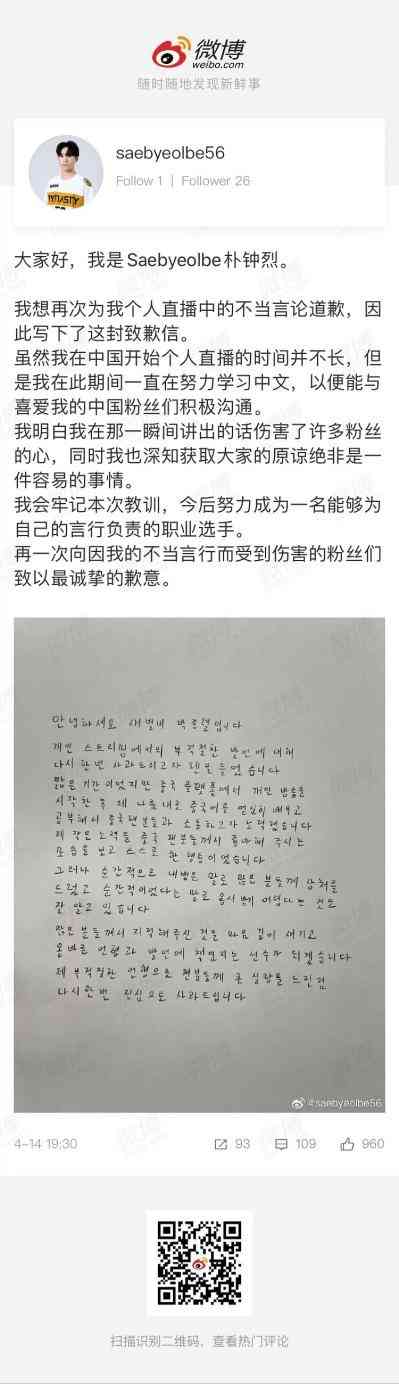 微博
weibo.com
随时随地发现新鲜事
saebyeolbe56
Follow 1 | Follower 26
大家好，我是Saebyeolbe朴钟烈。
我想再次为我个人直播中的不当言论道歉，因
此写下了这封致歉信。
虽然我在中国开始个人直播的时间并不长，但
是我在此期间一直在努力学习中文，以便能与
喜爱我的中国粉丝们积极沟通。
我明白我在那一瞬间讲出的话伤害了许多粉丝
的心，同时我也深知获取大家的原谅绝非是一
件容易的事情。
我会牢记本次教训，今后努力成为一名能够为
自己的言行负责的职业选手。
再一次向因我的不当言行而受到伤害的粉丝们
致以最诚挚的歉意。
안녕하세요 새별비 박종렬입니다
개인 스트리밍에서의 부적절한 발언에 대해
다시 한번 사과드리고자 펜을 들었습니다
짧은 기간이었지만 중국 플랫폼에서 개인 방송을
시작한 후 제 나름대로 중국어를 열심히 배우고
공부해서 중국팬분들과 소통하고자 노력했습니다
제 작은 노력을 중국 팬분들께서 좋아해 주시는
모습을 보고 스스로 한 행동이었습니다
그러나 순간적으로 내뱉은 말로 많은 분들께 상처를
드렸고 순간적이었다는 말로 용서받기 어렵다는 것도
잘 알고 있습니다
많은분들께서 지적해주신 것을 마음 깊이 새기고
올바른 언행과 발언에 책임지는 선수가 되겠습니다
제 부적절한 언행으로 팬분들께 큰 실망을 드린점
다시한번 진심으로 사과드립니다
@saebyeolbe56
4-14 19:30
93
109
960
扫描识别二维码，查看热门评论